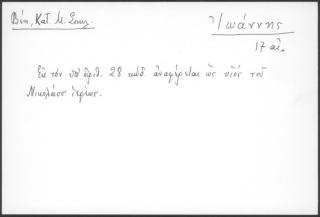 Βέη, Κατ. Μ. Σουμ.
Ἰωάννης
17 αἰ.
Ἐκ τὸν ὑπ' ἀριθ. 28 κώδ. ἀναφέρεται ὡς υἱὸς τοῦ
Νικολάου ἱερέως.